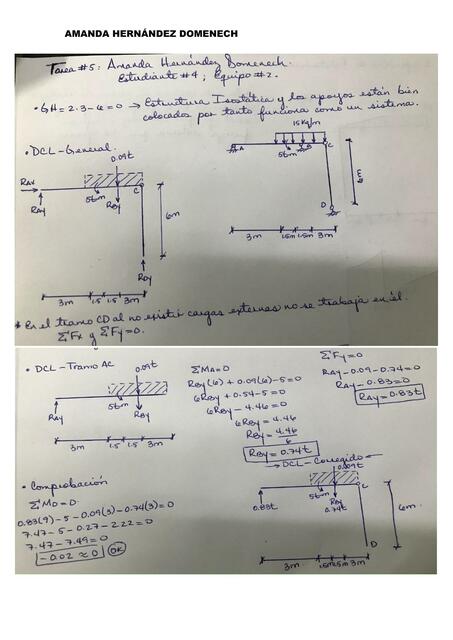 AMANDA HERNÁNDEZ DOMENECH
Tarea #5: Amanda Hernández Domenech.
Estudiante #4; Equipo #2.
• GH = 2·3-6=0 → Estructura Isostática y los apoyos están bien
colocados por tanto funciona como un sistema.
• DCL - General.
0.09t
RAX
RAY
5tm
RBY
C
6m
RDY
3m 1.5 1.5 3m
15kg/m
A
5tm
B
C
D
3m 1.5m 1.5m 3m
* En el tramo CD al no existir cargas externas no se trabaja en él.
ΣFx y ΣFy=0.
• DCL - Tramo AC
0.09t
RAY
5tm
RBY
3m 1.5 1.5 3m
ΣMA=0
RBY(6) + 0.09(6)-5=0
6RBY + 0.54-5=0
6RBY - 4.46=0
6RBY = 4.46
RBY = 4.46
6
RBY = 0.74t
ΣFy=0
RAY-0.09-0.74=0
RAY-0.83=0
RAY=0.83t
→ DCL - Corregido ←
0.09t
0.83t
5tm
RBY
0.74t
C
6m
D
3m 1.5m 1.5m 3m
• Comprobación
ΣMD=0
0.83(9)-5-0.09(3)-0.74(3)=0
7.47-5-0.27-2.22=0
7.47-7.49=0
-0.02≈0 OK